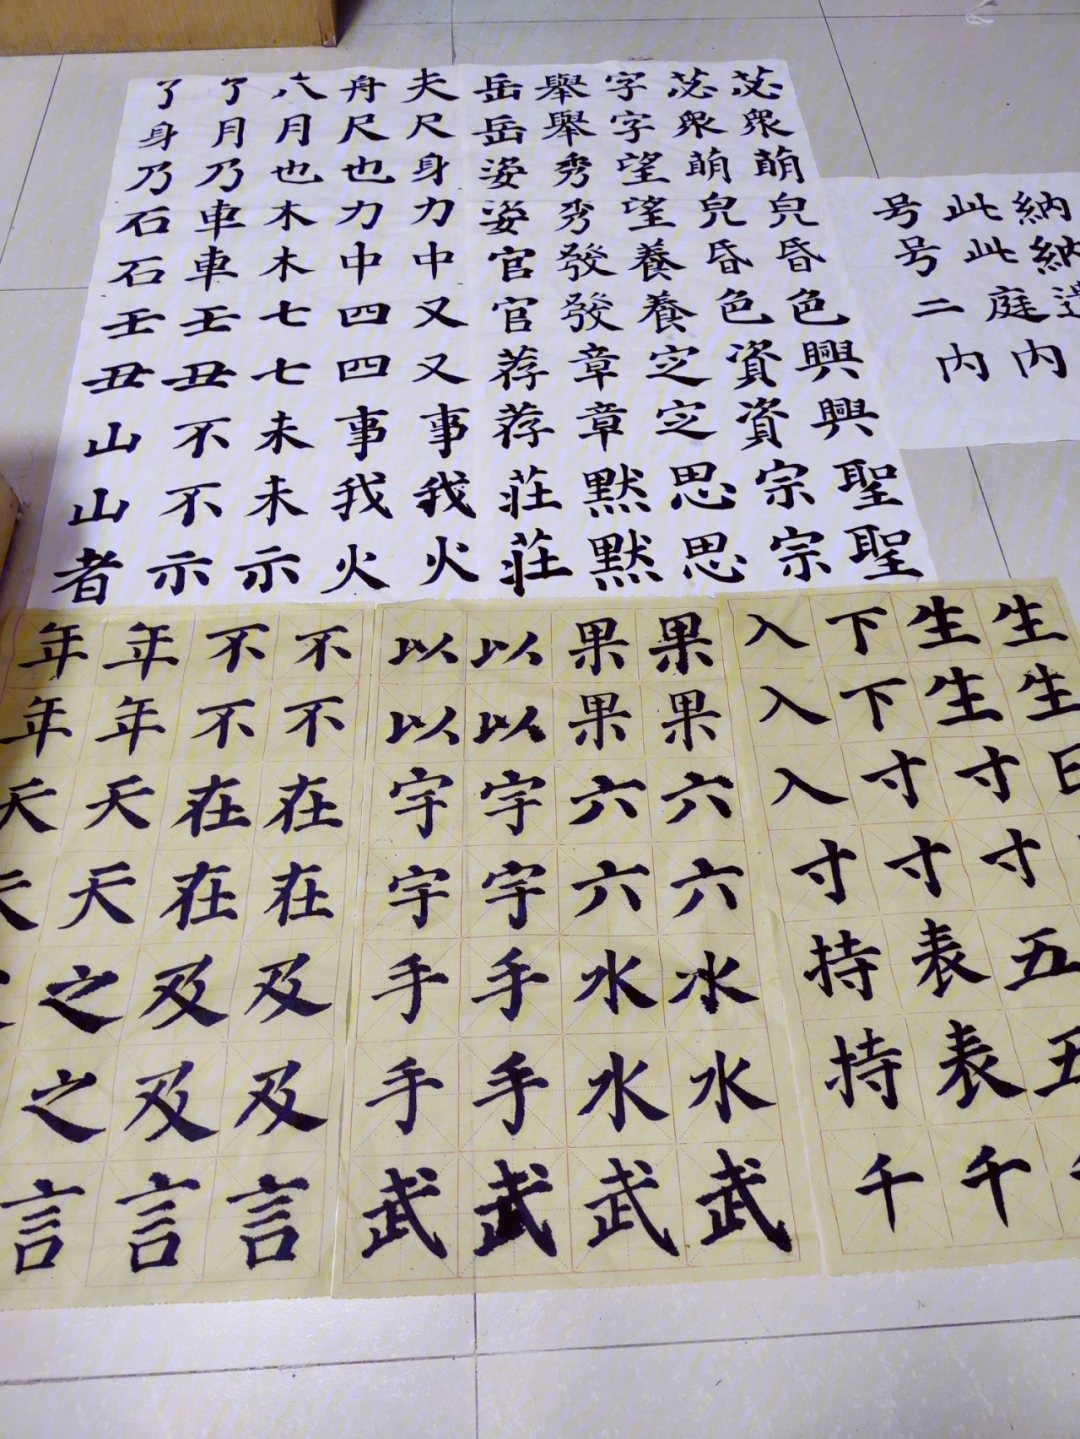 了了六舟夫岳舉字苾苾
身月月尺尺岳舉字衆衆
乃乃也也身姿秀望萌萌
石車木力力姿秀望皃皃
石車木中中官發養昏昏
壬壬七四又官發養色色
丑丑七四又荐章定資興
山不未事事荐章定資興
山不未我我莊默思宗聖
者示示火火莊默思宗聖
号此納
号此納
二庭
内内
年年不不
年年不不
天天在在
天天在在
之及及
之及及
言言言
以以果果
以以果果
宇宇六六
宇宇六六
手手水水
手手水水
武武武武
入下生生
入下生生
入寸寸
寸寸寸
持表五
持表五
千千